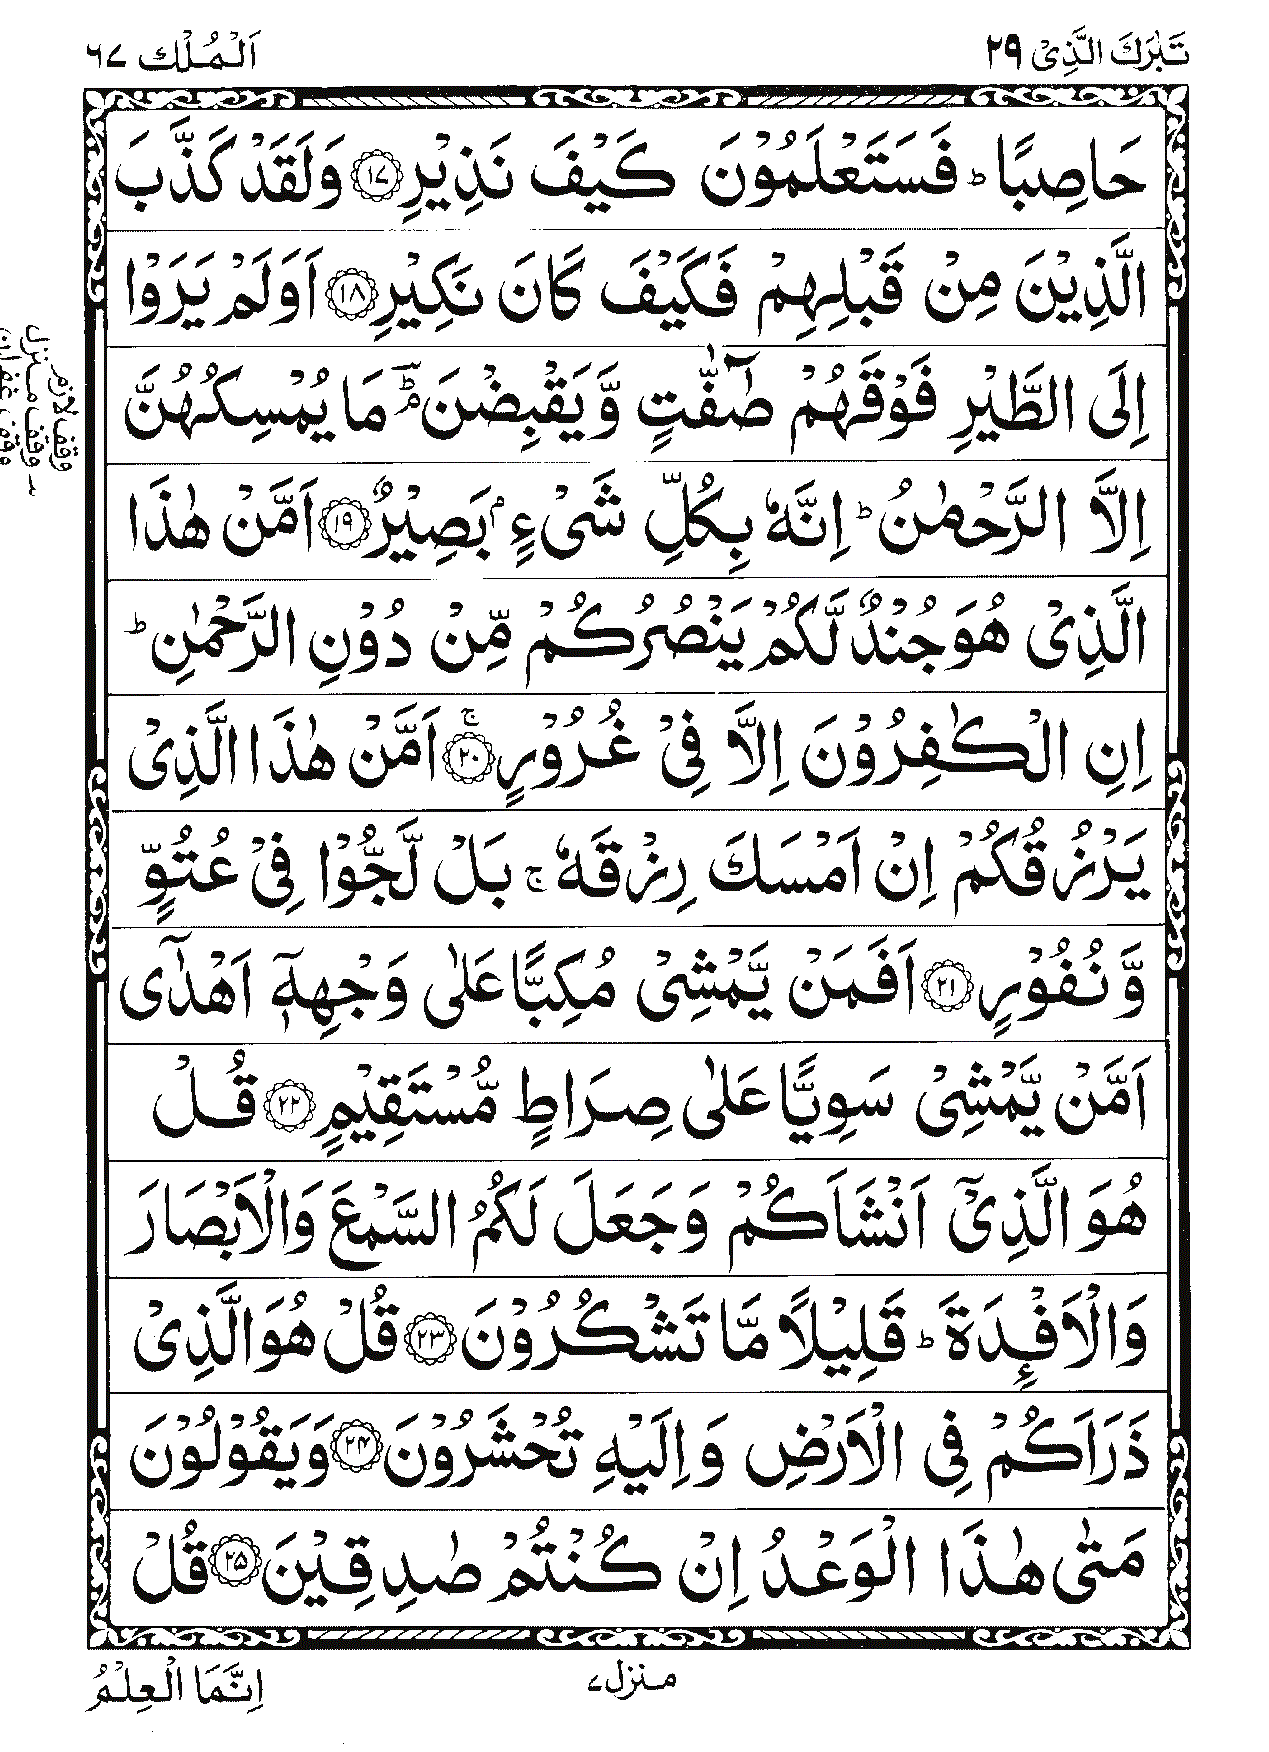 تَبٰرَكَ الَّذِىْ ٢٩
اَلْمُلْك ٦٧
حَاصِبًا ؕ فَسَتَعْلَمُوْنَ كَيْفَ نَذِيْرِ ﴿١٧﴾ وَلَقَدْ كَذَّبَ
الَّذِيْنَ مِنْ قَبْلِهِمْ فَكَيْفَ كَانَ نَكِيْرِ ﴿١٨﴾ اَوَلَمْ يَرَوْا
اِلَى الطَّيْرِ فَوْقَهُمْ صٰٓفّٰتٍ وَّيَقْبِضْنَ ؔ ۘؕ مَا يُمْسِكُهُنَّ
اِلَّا الرَّحْمٰنُ ؕ اِنَّهٗ بِكُلِّ شَىْءٍۢ بَصِيْرٌ ﴿١٩﴾ اَمَّنْ هٰذَا
الَّذِىْ هُوَ جُنْدٌ لَّكُمْ يَنْصُرُكُمْ مِّنْ دُوْنِ الرَّحْمٰنِ ؕ
اِنِ الْكٰفِرُوْنَ اِلَّا فِىْ غُرُوْرٍ ﴿٢٠﴾ۚ اَمَّنْ هٰذَا الَّذِىْ
يَرْزُقُكُمْ اِنْ اَمْسَكَ رِزْقَهٗ ۚ بَلْ لَّجُّوْا فِىْ عُتُوٍّ
وَّنُفُوْرٍ ﴿٢١﴾ اَفَمَنْ يَّمْشِىْ مُكِبًّا عَلٰى وَجْهِهٖۤ اَهْدٰٓى
اَمَّنْ يَّمْشِىْ سَوِيًّا عَلٰى صِرَاطٍ مُّسْتَقِيْمٍ ﴿٢٢﴾ قُلْ
هُوَ الَّذِىْۤ اَنْشَاَكُمْ وَجَعَلَ لَكُمُ السَّمْعَ وَالْاَبْصَارَ
وَالْاَفْـِٕدَةَ ؕ قَلِيْلًا مَّا تَشْكُرُوْنَ ﴿٢٣﴾ قُلْ هُوَ الَّذِىْ
ذَرَاَكُمْ فِى الْاَرْضِ وَاِلَيْهِ تُحْشَرُوْنَ ﴿٢٤﴾ وَيَقُوْلُوْنَ
مَتٰى هٰذَا الْوَعْدُ اِنْ كُنْتُمْ صٰدِقِيْنَ ﴿٢٥﴾ قُلْ
وقف لازم
وقف منزل
وقف غفران
منزل ٧
اِنَّمَا الْعِلْمُ